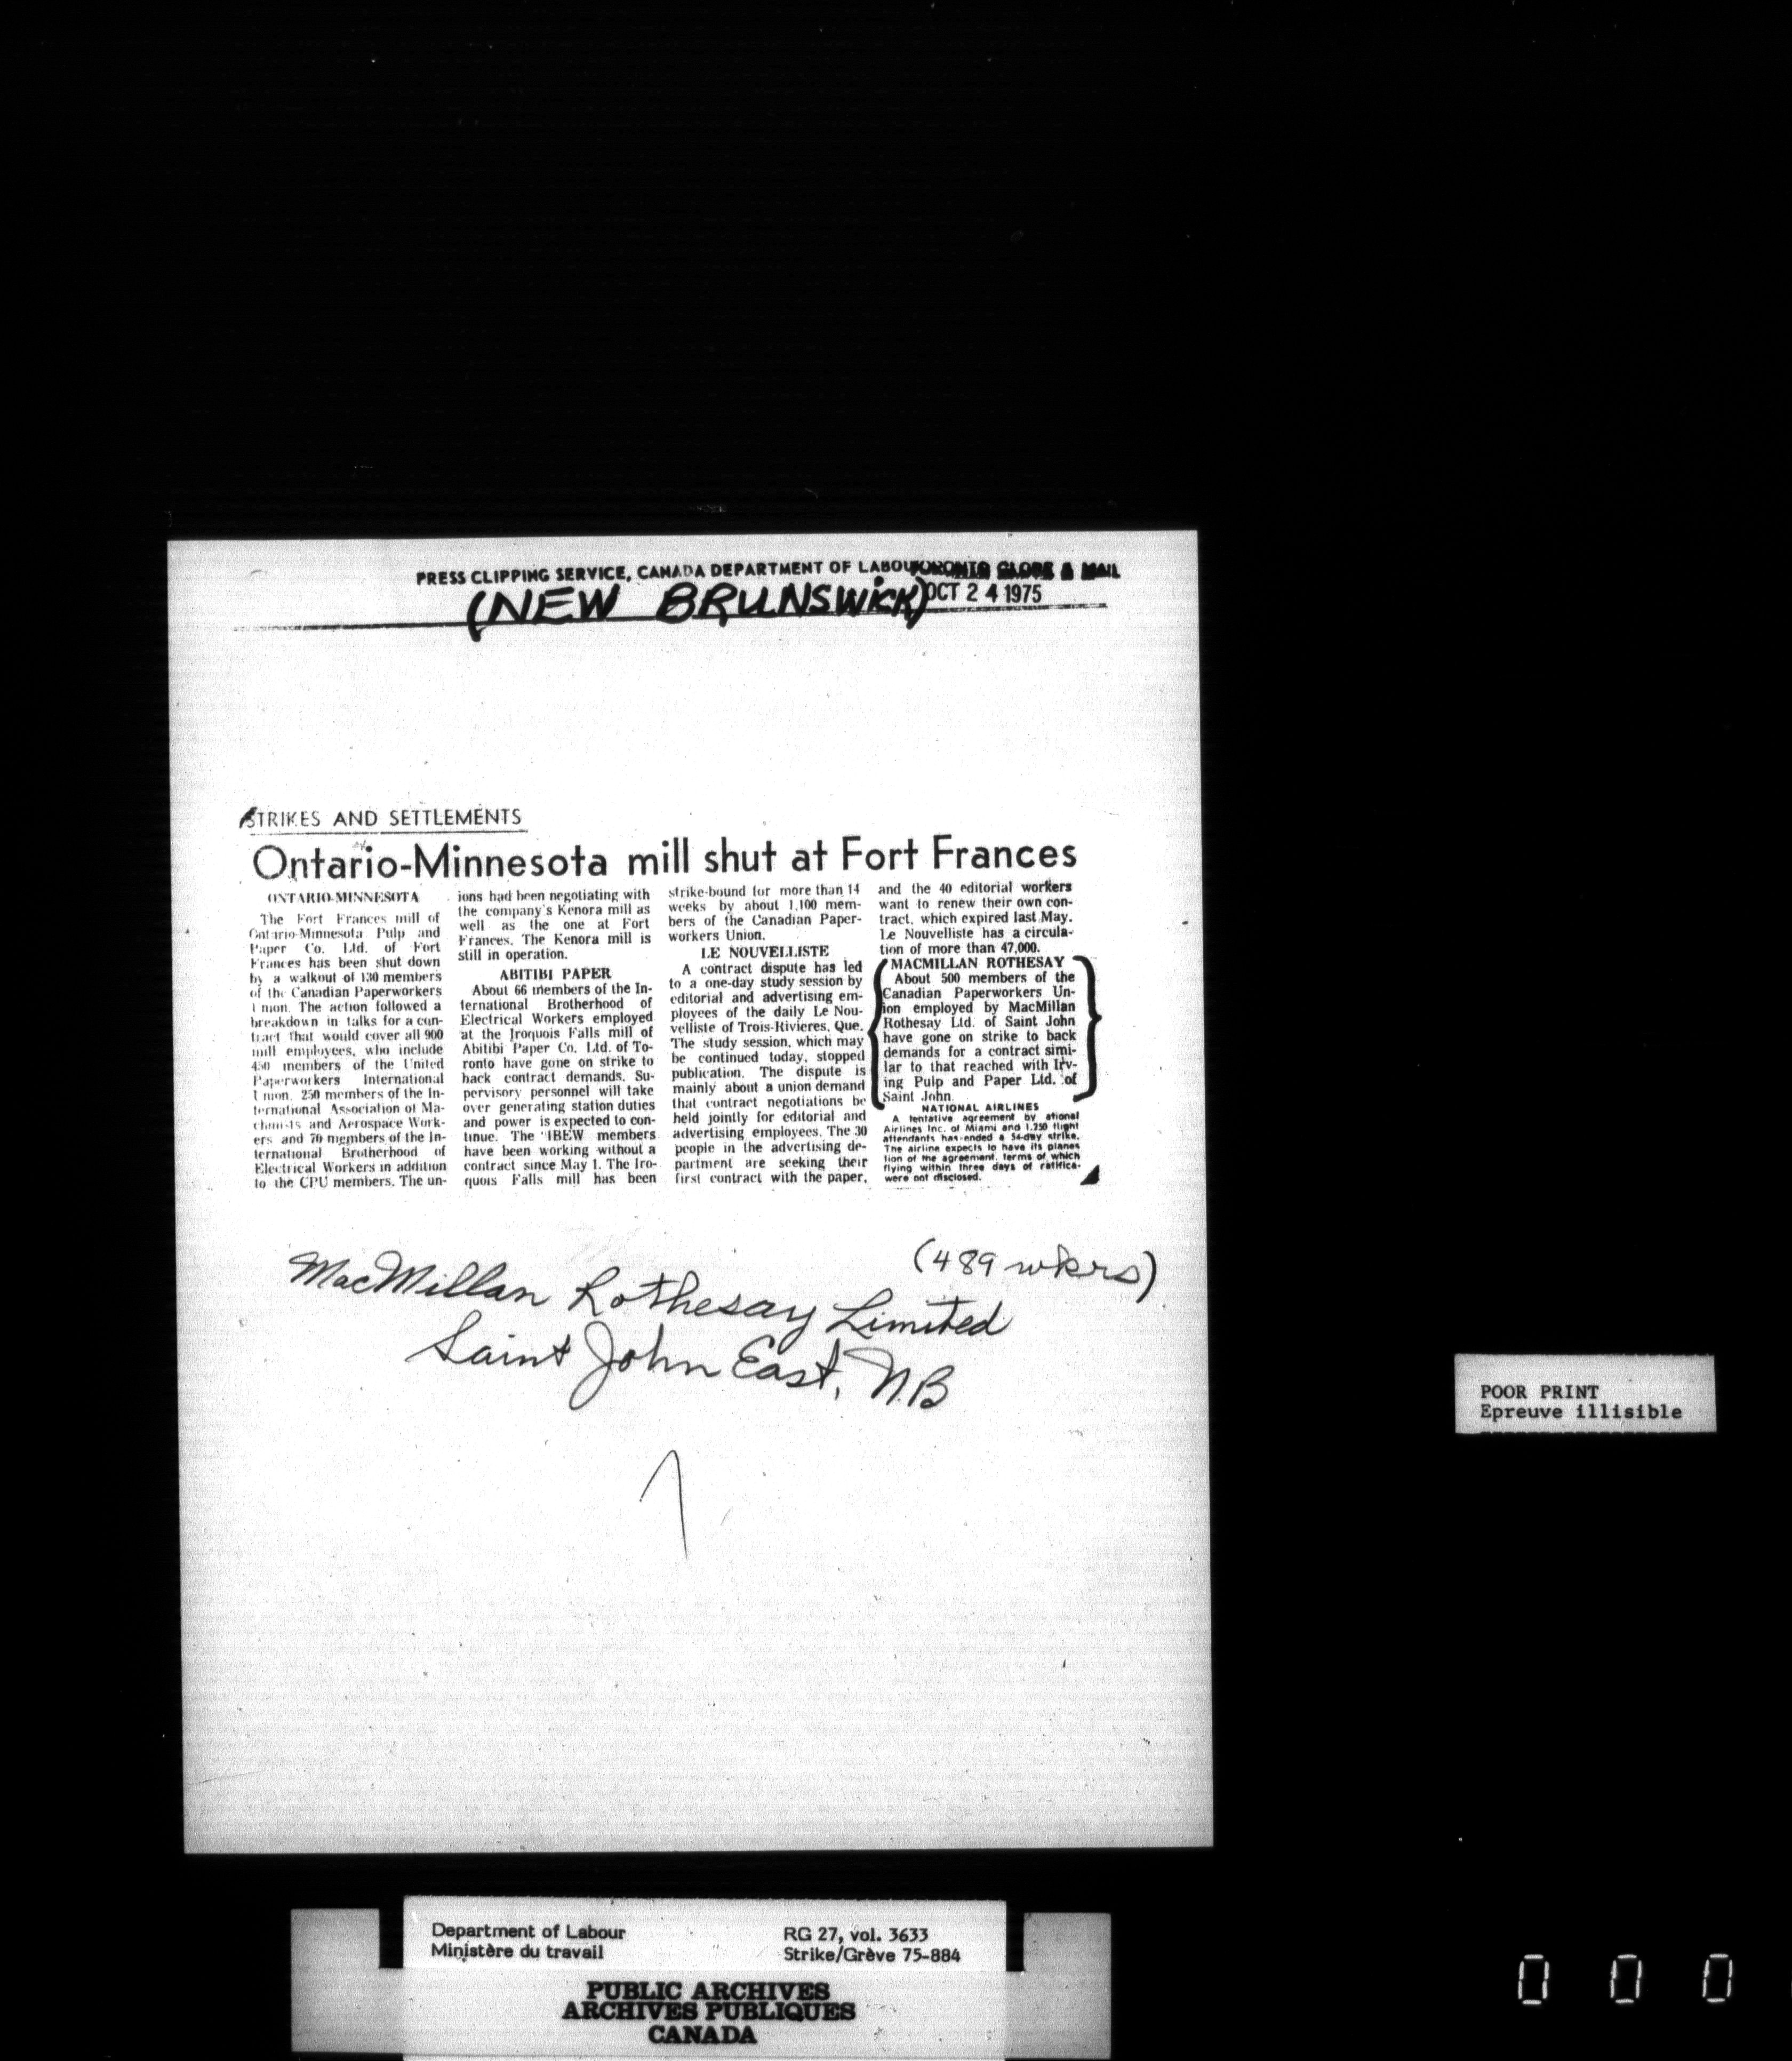 PRESS CLIPPING SERVICE, CANADA DEPARTMENT OF LABOUR
TORONTO GLOBE & MAIL
(NEW BRUNSWICK)
OCT 24 1975
STRIKES AND SETTLEMENTS
Ontario-Minnesota mill shut at Fort Frances
ONTARIO-MINNESOTA
The Fort Frances mill of
Ontario-Minnesota Pulp and
Paper Co. Ltd. of Fort
Frances has been shut down
by a walkout of 130 members
of the Canadian Paperworkers
Union. The action followed a
breakdown in talks for a con-
tract that would cover all 900
mill employees, who include
450 members of the United
Paperworkers International
Union, 250 members of the In-
ternational Association of Ma-
chinists and Aerospace Work-
ers and 70 members of the In-
ternational Brotherhood of
Electrical Workers in addition
to the CPU members. The un-
ions had been negotiating with
the company's Kenora mill as
well as the one at Fort
Frances. The Kenora mill is
still in operation.
ABITIBI PAPER
About 66 members of the In-
ternational Brotherhood of
Electrical Workers employed
at the Iroquois Falls mill of
Abitibi Paper Co. Ltd. of To-
ronto have gone on strike to
back contract demands. Su-
pervisory personnel will take
over generating station duties
and power is expected to con-
tinue. The IBEW members
have been working without a
contract since May 1. The Iro-
quois Falls mill has been
strike-bound for more than 14
weeks by about 1,100 mem-
bers of the Canadian Paper-
workers Union.
LE NOUVELLISTE
A contract dispute has led
to a one-day study session by
editorial and advertising em-
ployees of the daily Le Nou-
velliste of Trois-Rivieres, Que.
The study session, which may
be continued today, stopped
publication. The dispute is
mainly about a union demand
that contract negotiations be
held jointly for editorial and
advertising employees. The 30
people in the advertising de-
partment are seeking their
first contract with the paper,
and the 40 editorial workers
want to renew their own con-
tract, which expired last May.
Le Nouvelliste has a circula-
tion of more than 47,000.
MACMILLAN ROTHESAY
About 500 members of the
Canadian Paperworkers Un-
ion employed by MacMillan
Rothesay Ltd. of Saint John
have gone on strike to back
demands for a contract simi-
lar to that reached with Irv-
ing Pulp and Paper Ltd. of
Saint John.
NATIONAL AIRLINES
A tentative agreement by ational
Airlines Inc. of Miami and 1,250 flight
attendants has ended a 54-day strike.
The airline expects to have its planes
tion of the agreement, terms of which
flying within three days of ratifica-
were not disclosed.
(489 wkrs)
MacMillan Rothesay Limited
Saint John East, N.B
POOR PRINT
Epreuve illisible
Department of Labour
Ministère du travail
RG 27, vol. 3633
Strike/Grève 75-884
PUBLIC ARCHIVES
ARCHIVES PUBLIQUES
CANADA
0 0 0